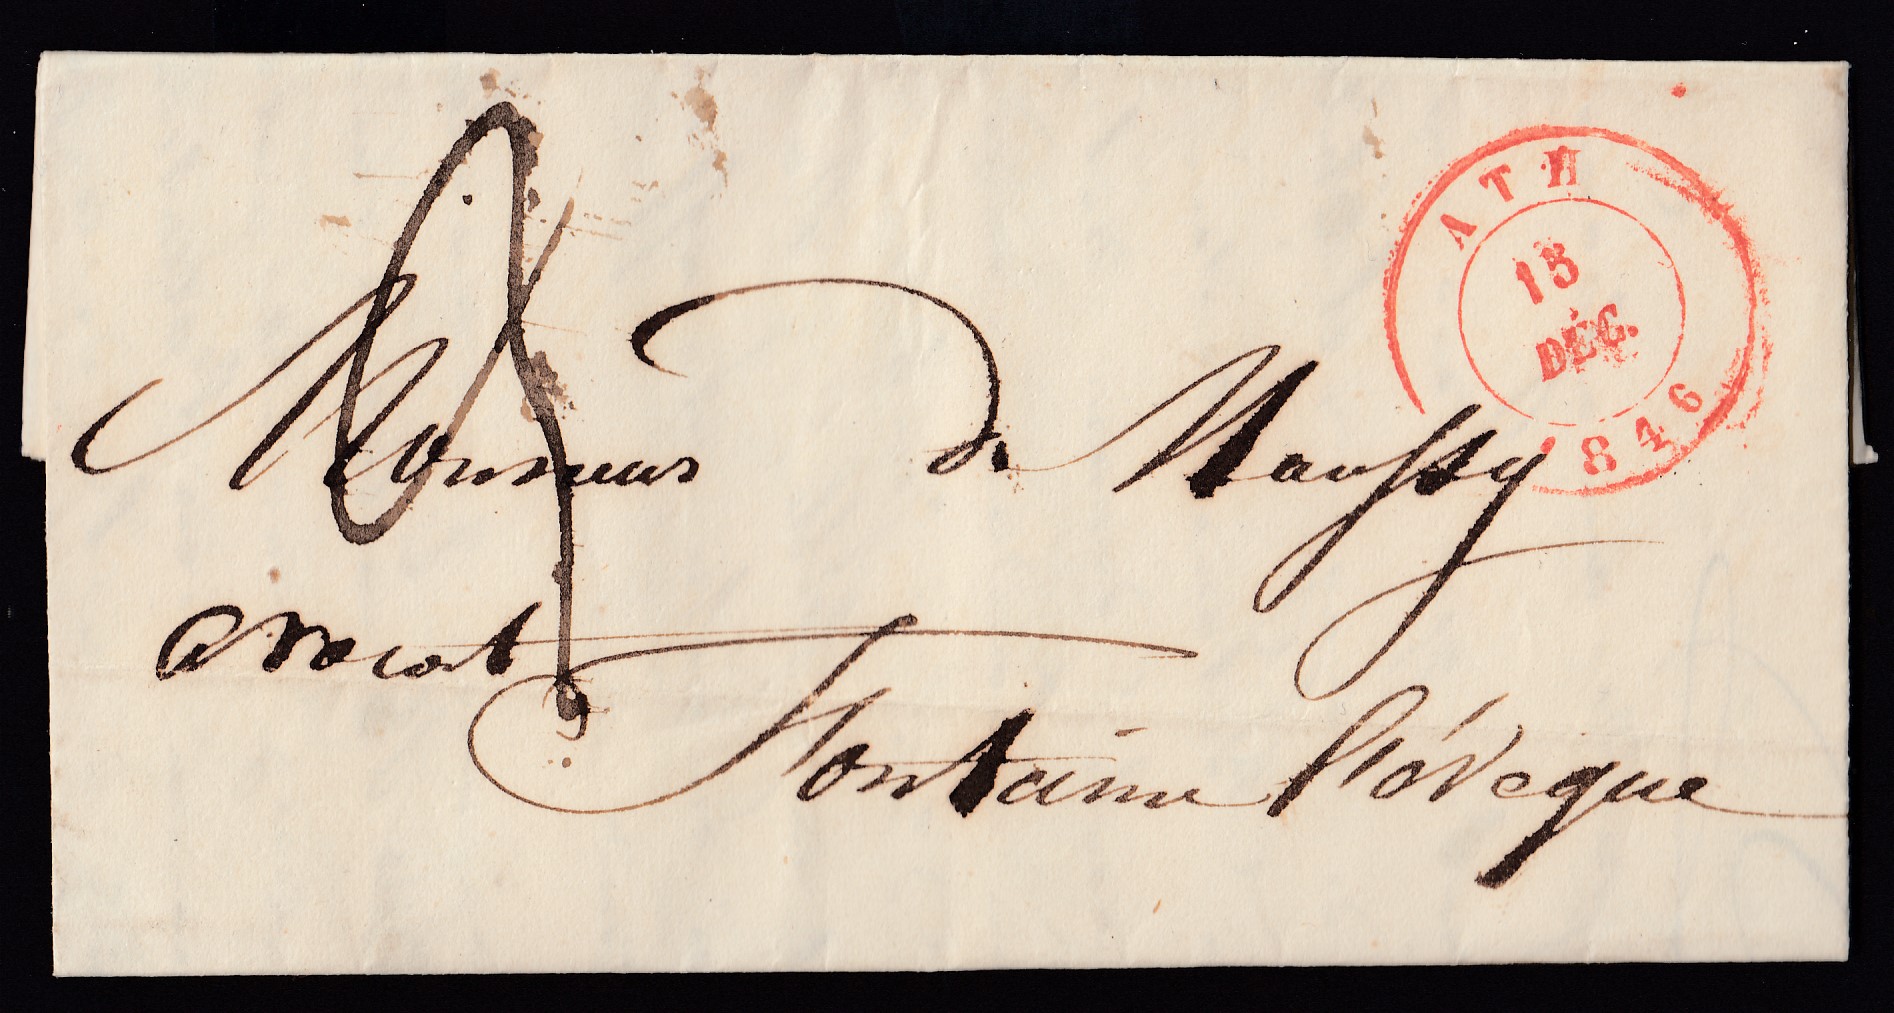 ATH
15
DÉC.
1846
Monsieur de
avocat
Fontaine l'évêque